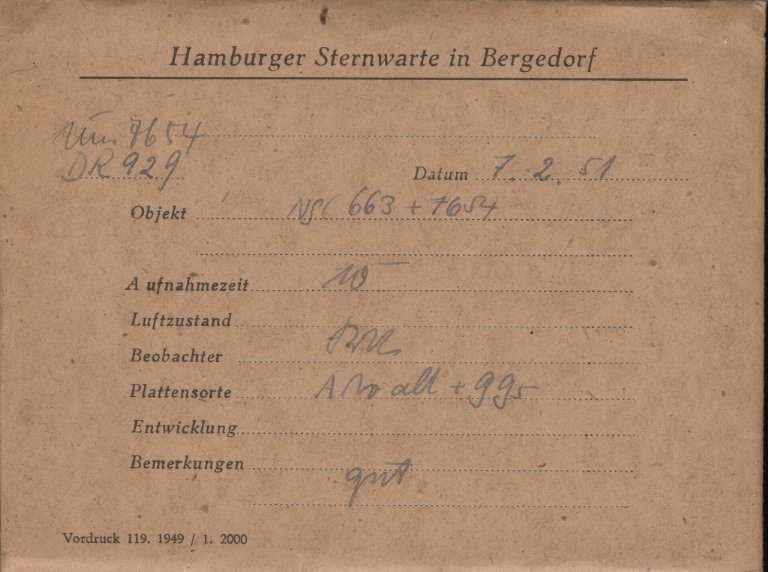 Hamburger Sternwarte in Bergedorf
7654
DR 929
Datum 7. 2. 51
Objekt NGC 663 + 7654
Aufnahmezeit 10
Luftzustand
Beobachter
Plattensorte
Entwicklung
Bemerkungen gut
Vordruck 119. 1949 / 1. 2000